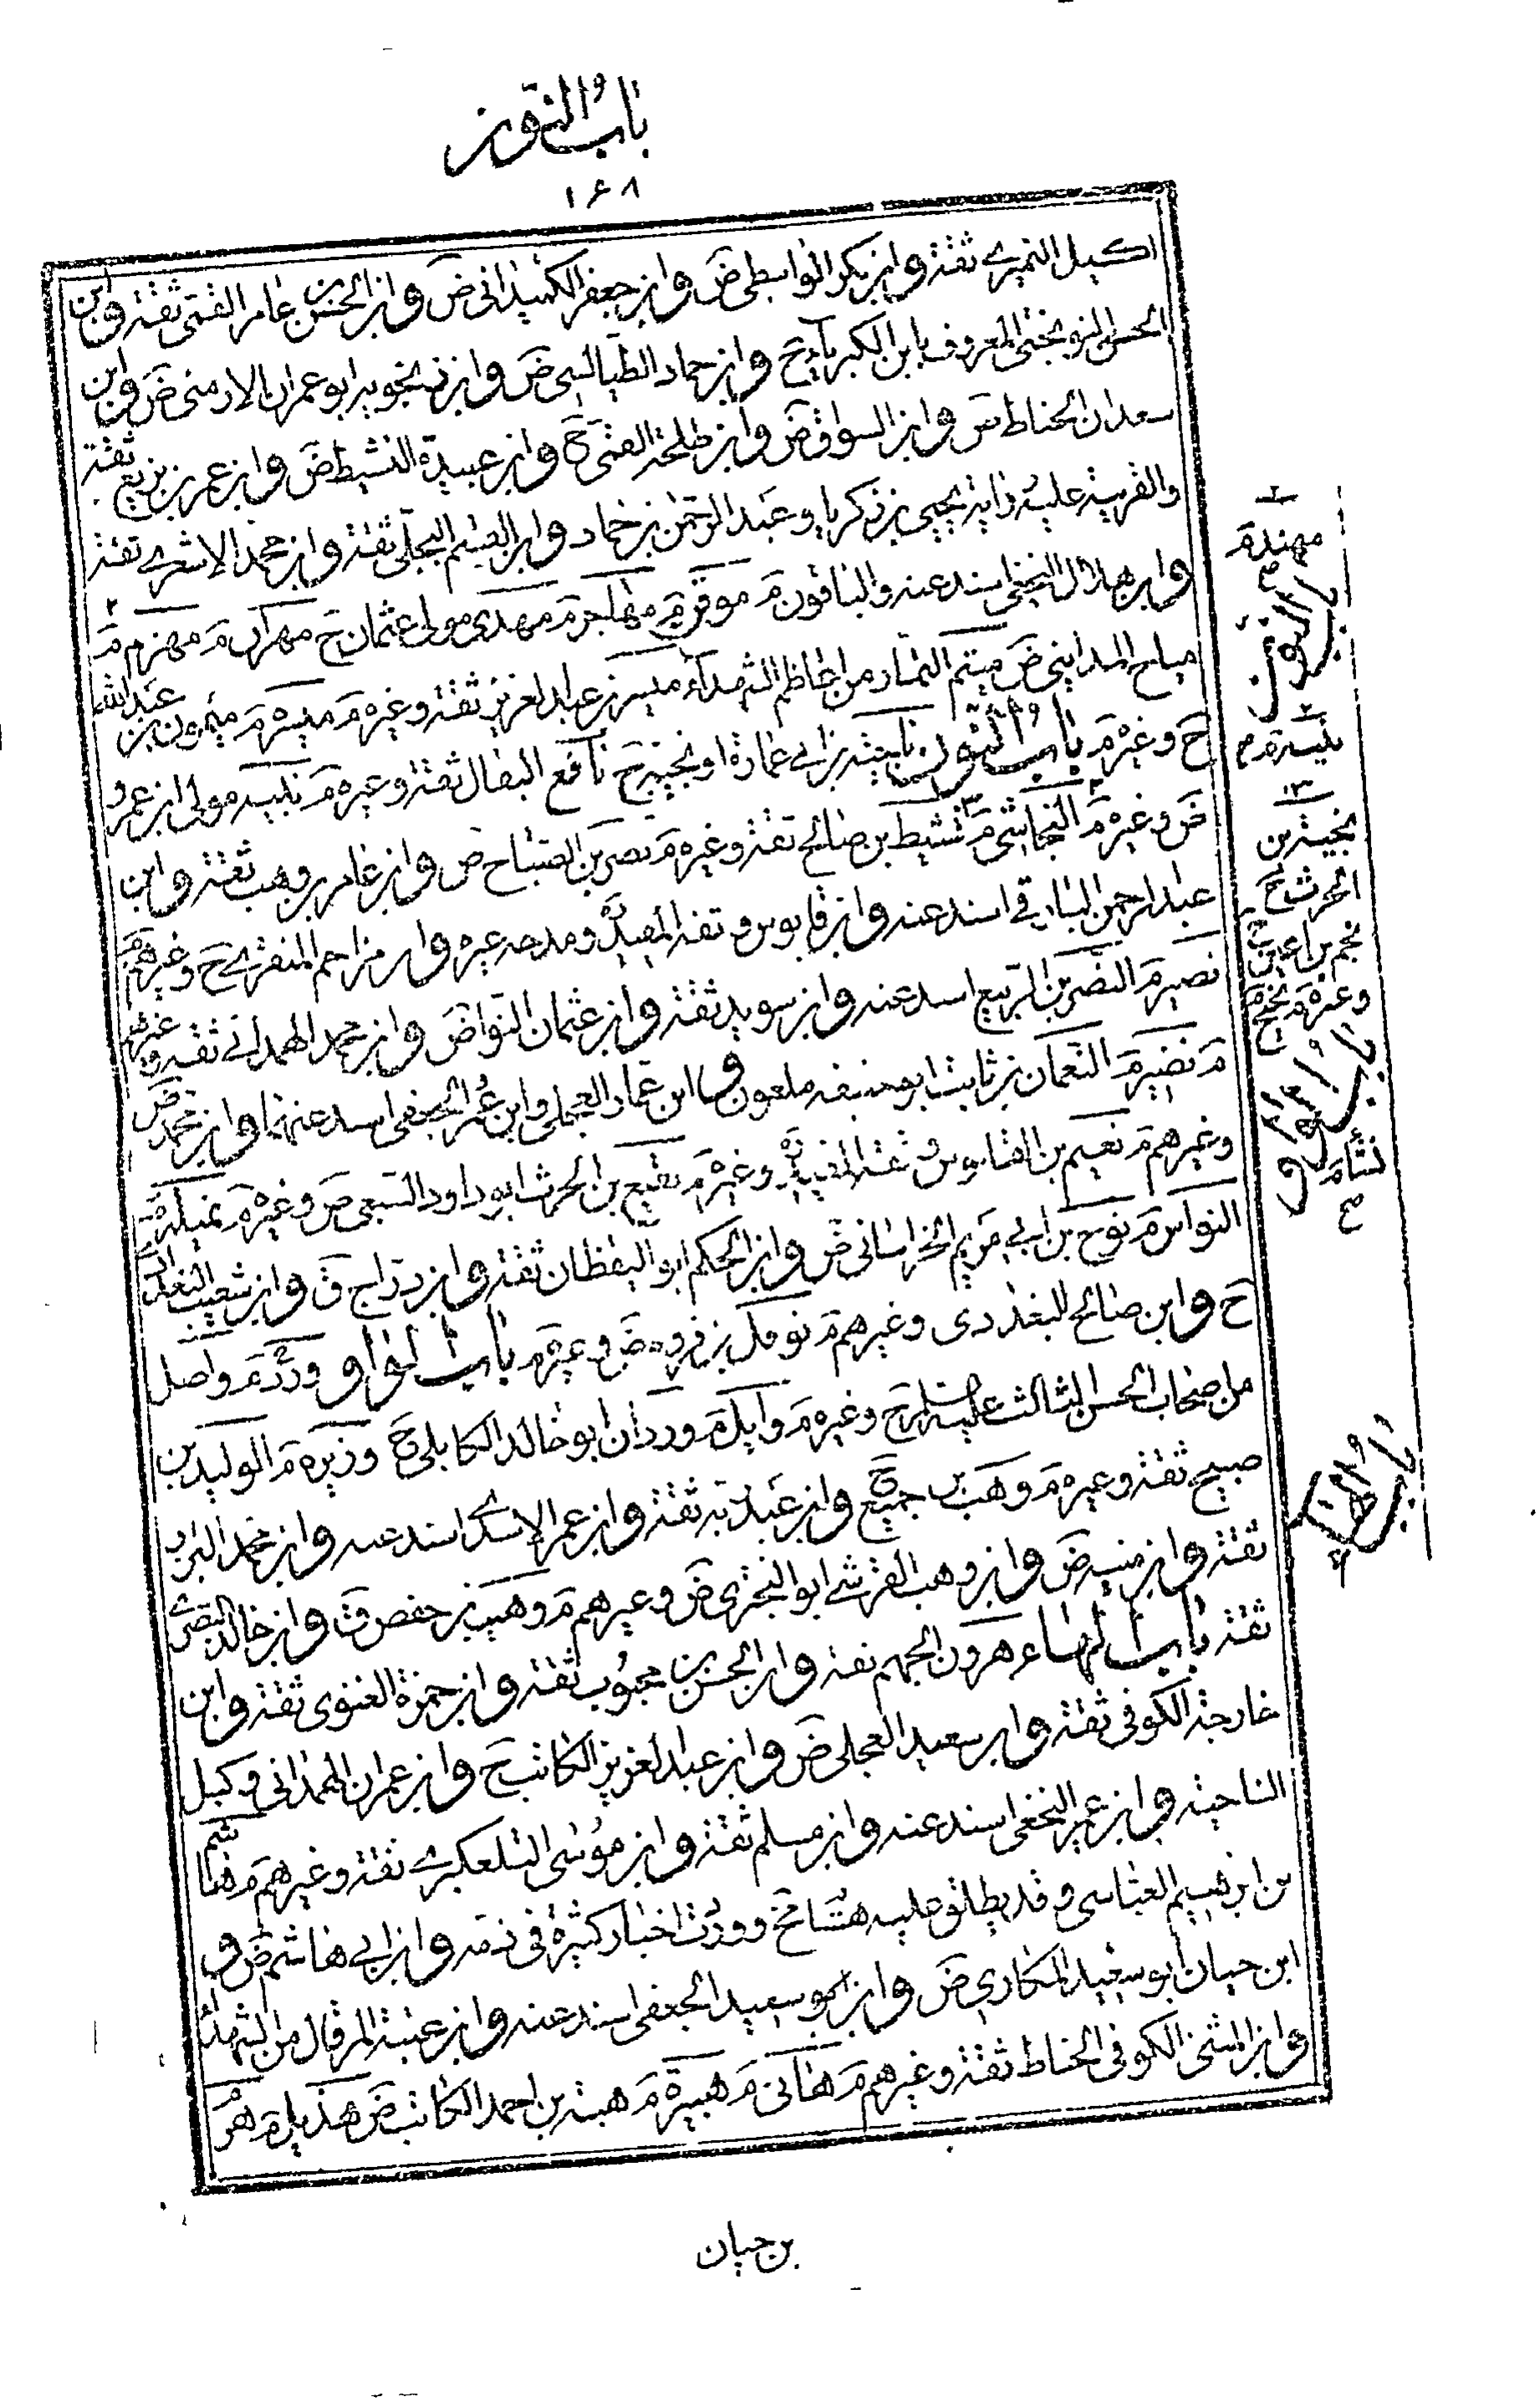 باب النون
١٦٨
اكيل النميري ثقة وابن بكر الواسطي ض وابن جعفر الكميذاني ض وابن الحسن بن عامر القمي ثقة وابن
الحسن النوبختي المعروف بابن الكبرياء ح وابن حماد الطيالسي ض وابن زنجويه ابو عمران الارمني ض وابن
سعدان الحناط ض وابن السواق ض وابن طلحة القمي ح وابن عبيدة النشيط ض وابن عمر بن بزيع ثقة
والقرينة عليه رواية يحيى بن زكريا وعبد الرحمن بن حماد وابن القسم البجلي ثقة وابن محمد الاشعري ثقة
وابن هلال النخعي اسند عنه والباقون م موفق م مهاجر م مهدي مولى عثمان ح مهران م مهزم م
مياح المدايني ض ميثم التمار من اعاظم الشهداء ميسر بن عبد العزيز ثقة وغيره م ميسره م ميمون بن عبد الله
ح وغيره م باب النون ناجية بن ابي عمارة او نجية ح نافع البقال ثقة وغيره م مولى ابن عمرو
ض وغيره م النجاشي م نشيط بن صالح ثقة وغيره م نصر بن الصباح ض وابن عامر بن وهب ثقة وابن
عبد الرحمن البارقي اسند عنه وابن قابوس وثقه المفيد ومدحه غيره وابن مزاحم المنقري ح وغيرهم م
نصير م النضر بن الربيع اسند عنه وابن سويد ثقة وابن عثمان النوا ض وابن محمد الهمداني ثقة وغيرهم
م نضير م النعمان بن ثابت ابو حنيفه ملعون وابن عمار العجلي وابن عمر الجعفي اسند عنهما وابن محمد ض
وغيرهم م نعيم بن القابوس ثقة المفيد وغيره م نفيع بن الحرث ابو داود السبعي ض وغيره م نميلة م
النواس م نوح بن ابي مريم الخراساني ض وابن الحكم ابو اليقظان ثقة وابن دراج ق وابن شعيب البغدادي
ح وابن صالح البغدادي وغيرهم م نوفل بن فروه ض وغيره م باب الواو ورد م واصل
من اصحاب الحسن الثالث عليه السلم ح وغيره م وايل م وردان ابو خالد الكابلي ح وزيره م الوليد بن
صبيح ثقة وغيره م وهب بن جميع ح وابن عبد ربه ثقة وابن عمر الاسدي اسند عنه وابن محمد البزاز
ثقة وابن منبه ض وابن وهب القرشي ابو البختري ض وغيرهم م وهيب بن حفص ق وابن خالد البصري
ثقة باب الهاء هرون الجهم ثقة وابن الحسن بن محبوب ثقة وابن حمزة الغنوي ثقة وابن
خارجة الكوفي ثقة وابن سعيد العجلي ض وابن عبد العزيز الكاتب ح وابن عمران الهمذاني وكيل
الناحية وابن عمير النخعي اسند عنه وابن مسلم ثقة وابن موسى التلعكبري ثقة وغيرهم م هاشم
بن ابرهيم العباسي وقد يطلق عليه هشام ح ووردت اخبار كثيرة في ذمه وابن ابي هاشم ض و
ابن حيان ابو سعيد المكاري ض وابن ابو سعيد الجعفي اسند عنه وابن عتبة المرقال من الشهداء
وابن المثنى الكوفي الحناط ثقة وغيرهم م هاني م هبيرة م هبة بن احمد الكاتب ض هذيل م هر
مهندم
باب النون
نجية بن
الحرث ح
نجم بن اعين ح
وغيره م
باب الواو
باب الهاء
بن حيان